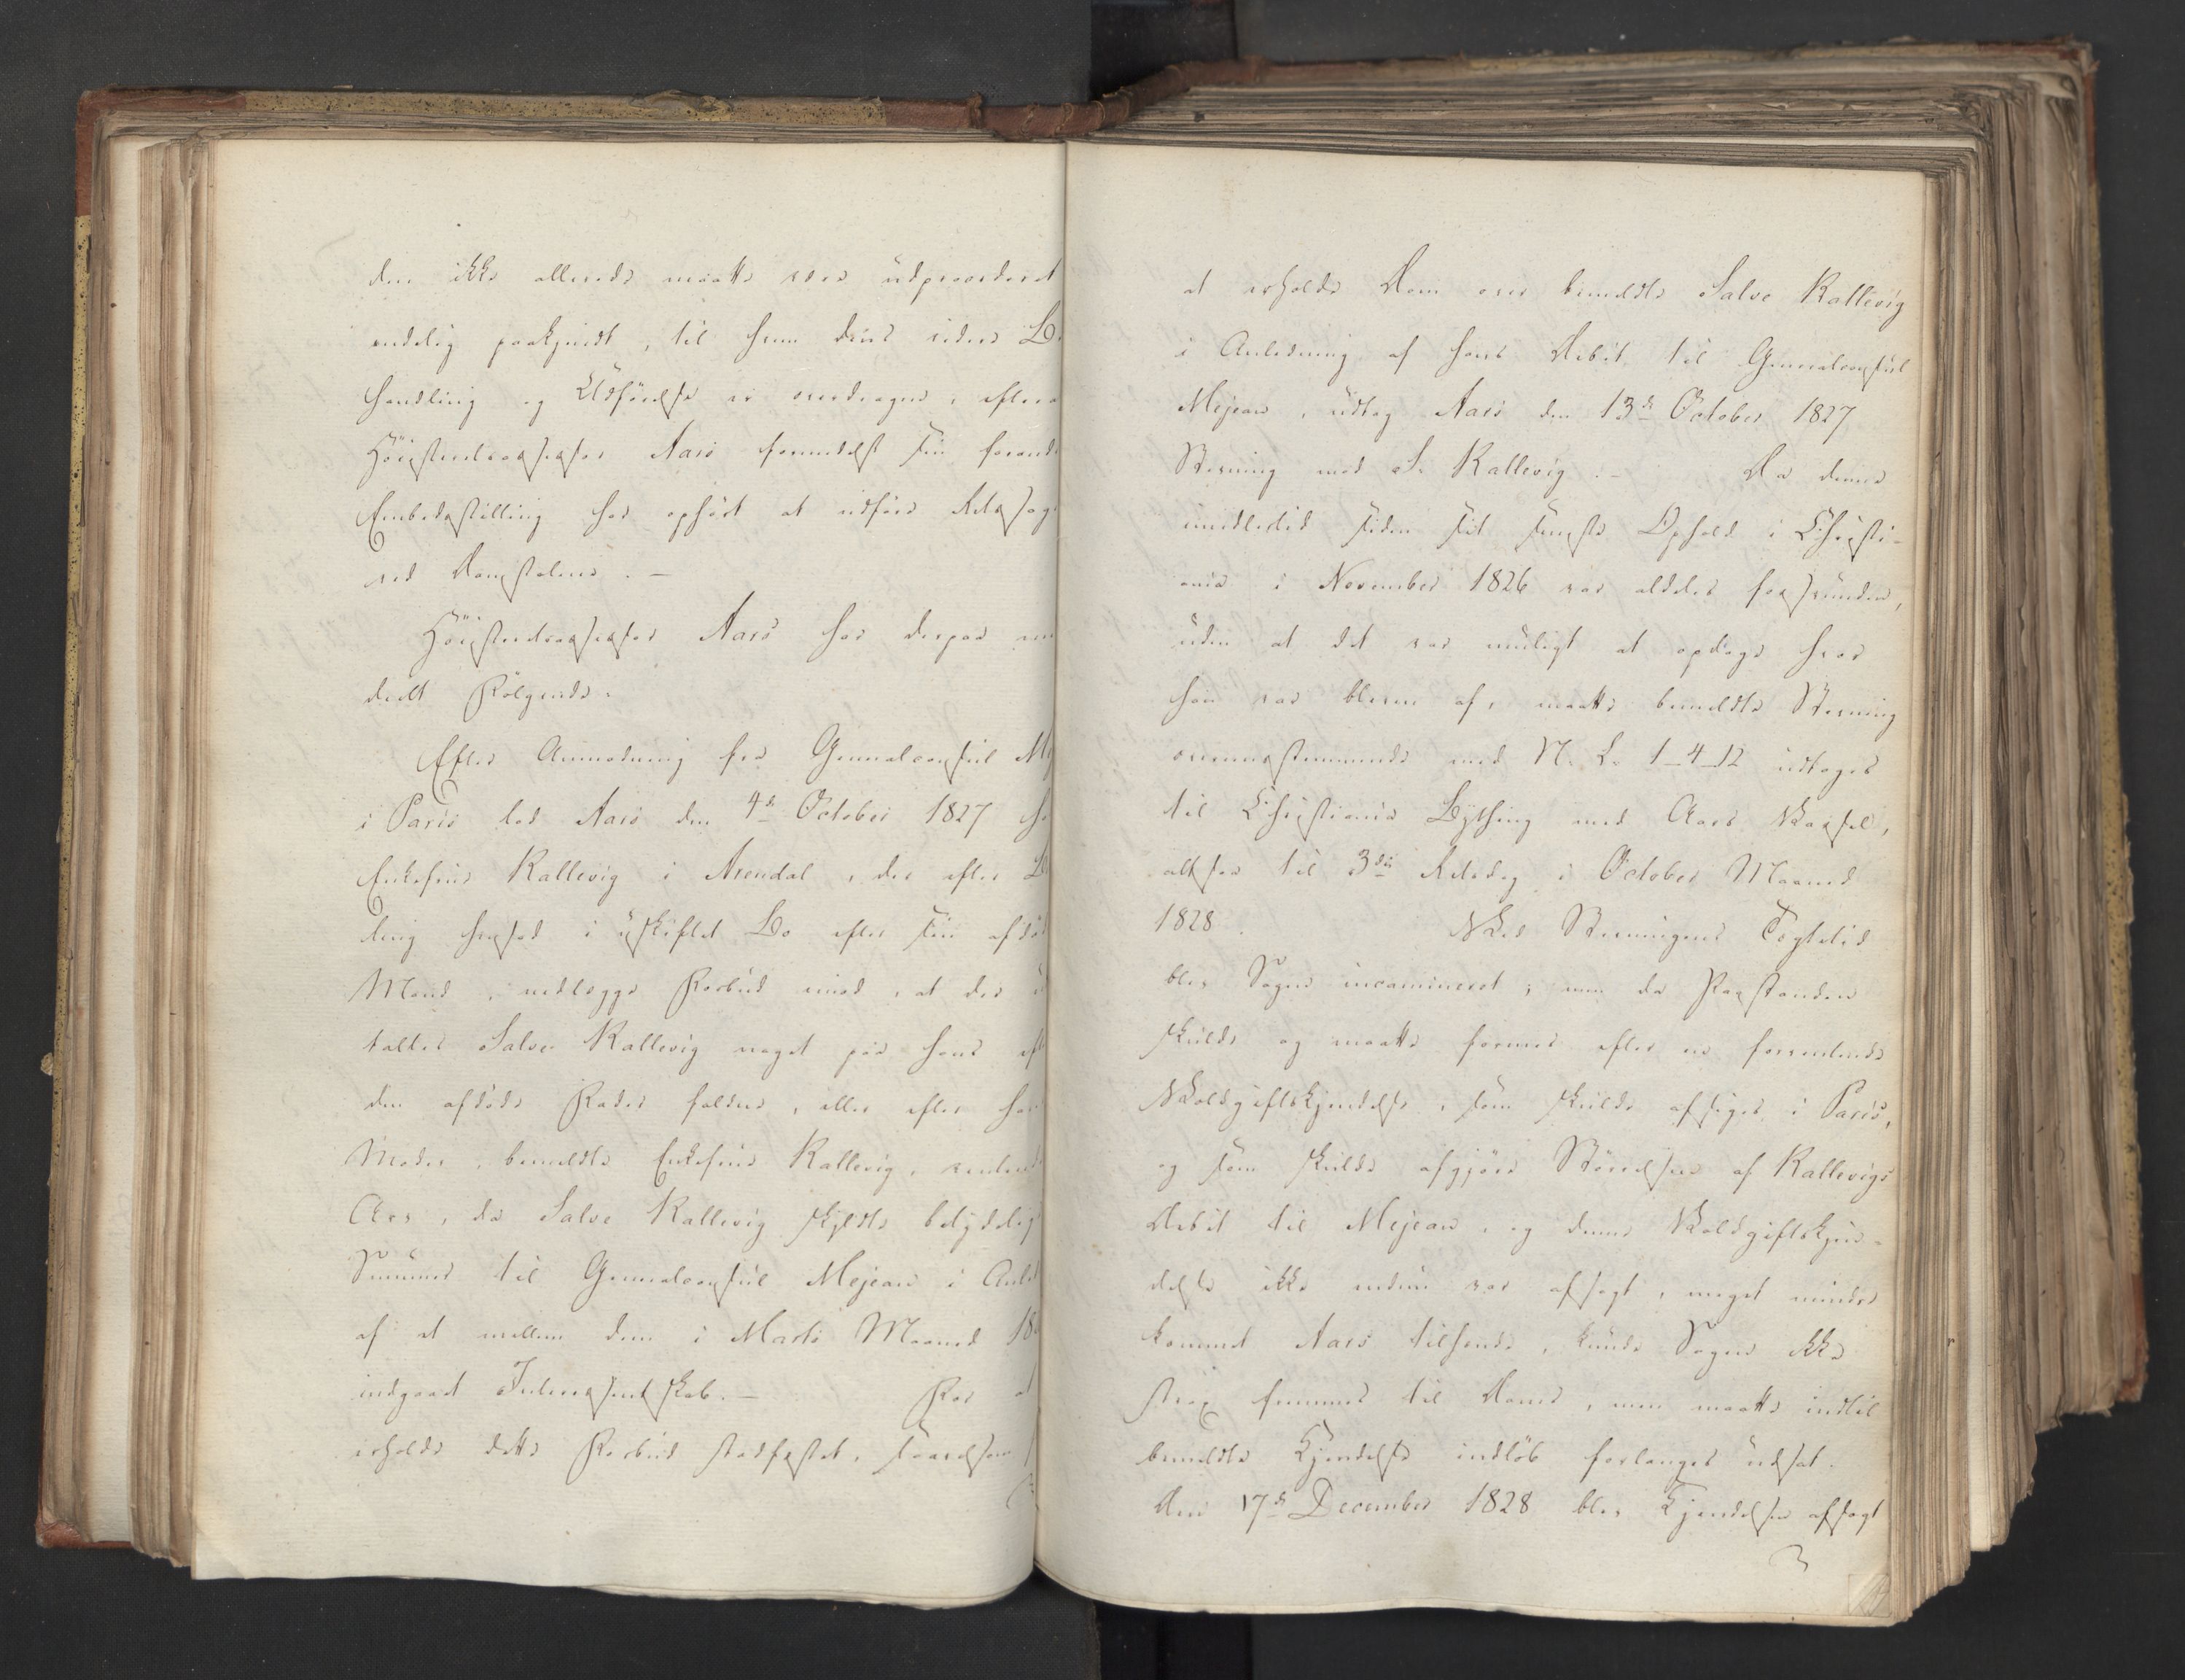 den ikke allerede maatte være udprocederet
endelig paakjendt, til hvem deres videre Be
handling og Udførelse er overdragen, efterat
Høiesteretsassessor Aars formedelst sin forandr
Embedsstilling har ophørt at udføre Retssage
ved Domstolene. –
Høiesteretsassessor Aars har derpaa med
deelt Følgende:
Efter Anmodning fra Generalconsul Mej
i Paris lod Aars den 4de October 1827 ho
Enkefrue Kallevig i Arendal, der efter Be
ling hensad i uskiftet Bo efter sin afdøde
Mand, nedlægge Forbud imod, at der ud
taltes Salve Kallevig noget paa hans eft
den afdøde Fader faldne, eller efter hans
Moder, bemeldte Enkefrue Kallevig, ventende
Arv, da Salve Kallevig skyldte betydelige
Summer til Generalconsul Mejean i Anled
af et mellem dem i Marts Maaned 18
indgaaet Interessentskab. – For at
erholde dette Forbud stadfæstet, saavelsom
at erholde Dom over bemeldte Salve Kallevig
i Anledning af hans Debet til Generalconsul
Mejean, udtog Aars den 13de October 1827
Stevning mod S. Kallevig. – Da denne
imidlertid siden sit seneste Ophold i Christi-
ania i November 1826 var aldeles forsvunden,
uden at det var muligt at opdage hvor
han var bleven af, maatte bemeldte Stevning
overeensstemmende med N. L. 1_4_12 udtages
til Christiania Bything med Aars Varsel,
altsaa til 3die Retsdag i October Maaned
1828. Ved Stevningens Tægtetid
blev Sagen incamineret; men da Paastanden
skulde og maatte formes efter en forventende
Voldgiftskjendelse, som skulde afsiges i Paris,
og som skulde afgjøre Størrelsen af Kallevigs
Debet til Mejean, og denne Voldgiftskjen-
delse ikke endnu var afsagt, meget mindre
kommet Aars tilhænde, kunde Sagen ikke
strax fremmes til Doms, men maatte indtil
bemeldte Kjendelse indløb forlanges udsat.
Den 17de December 1828 blev Kjendelsen afsagt